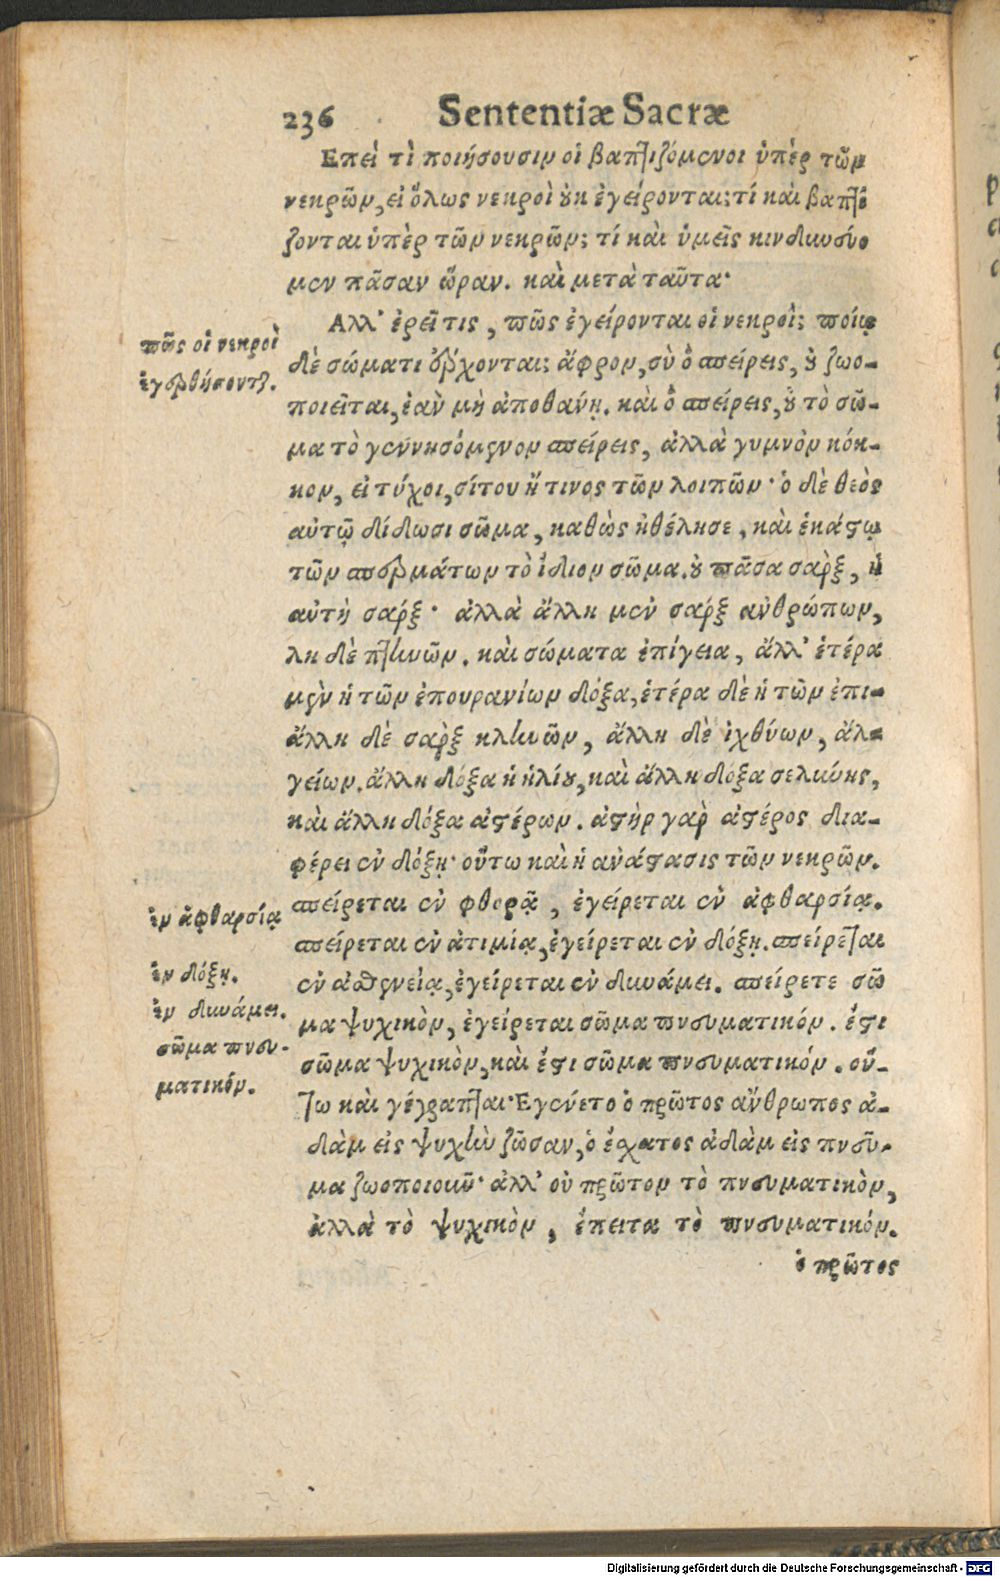 236 Sententiæ Sacræ
Επεὶ τὶ ποιήσουσιν οἱ βαπτιζόμενοι ὑπὲρ τῶν
νεκρῶν, εἰ ὅλως νεκροὶ ȣκ ἐγείρονται; τί καὶ βαπτί
ζονται ὑπὲρ τῶν νεκρῶν; τί καὶ ὑμεῖς κινδυνεύο
μεν πᾶσαν ὥραν. καὶ μετὰ ταῦτα·
Αλλ' ἐρεῖ τις, πῶς ἐγείρονται οἱ νεκροὶ; ποίῳ
δὲ σώματι ἔρχονται; ἄφρον, σὺ ὃ σπείρεις, ȣ ζωο-
ποιεῖται, ἐὰν μὴ ἀποθανῃ. καὶ ὃ σπείρεις, ȣ τὸ σῶ-
μα τὸ γεννησόμενον σπείρεις, ἀλλὰ γυμνὸν κόκ-
κον, εἰ τύχοι, σίτου ἤ τινος τῶν λοιπῶν· ὁ δὲ θεὸς
αὐτῷ δίδωσι σῶμα, καθὼς ἠθέλησε, καὶ ἑκάστῳ
τῶν σπερμάτων τὸ ἴδιον σῶμα. ȣ πᾶσα σαρξ, ἡ
αὐτὴ σαρξ· ἀλλὰ ἄλλη μεν σαρξ ανθρώπων,
λη δὲ πτηνῶν. καὶ σώματα ἐπίγεια, ἄλλ' ἑτέρα
μεν ἡ τῶν ἐπουρανίων δόξα, ἑτέρα δὲ ἡ τῶν ἐπι-
ἄλλη δὲ σαρξ κτηνῶν, ἄλλη δὲ ἰχθύων, ἄλ-
γείων. ἄλλη δόξα ἡ ἡλίȣ, καὶ ἄλλη δόξα σελήνης,
καὶ ἄλλη δόξα αστέρων. αστὴρ γαρ αστέρος δια-
φέρει εν δόξῃ· οὕτω καὶ ἡ ανάστασις τῶν νεκρῶν.
σπείρεται εν φθορᾷ, ἐγείρεται εν αφθαρσίᾳ.
σπείρεται εν ἀτιμίᾳ, ἐγείρεται εν δόξῃ. σπείρεται
εν ασθενείᾳ, ἐγείρεται εν δυνάμει. σπείρετε σῶ
μα ψυχικὸν, ἐγείρεται σῶμα πνευματικόν. ἔστι
σῶμα ψυχικὸν, καὶ ἔστι σῶμα πνευματικόν. οὕ-
τω καὶ γέγραπται· Εγένετο ὁ πρῶτος ἄνθρωπος ἀ-
δὰμ εἰς ψυχὴν ζῶσαν, ὁ ἔσχατος ἀδὰμ εἰς πνεῦ-
μα ζωοποιοῦν· ἀλλ' οὐ πρῶτον τὸ πνευματικὸν,
ἀλλὰ τὸ ψυχικὸν, ἔπειτα τὸ πνευματικόν.
ὁ πρῶτος
πῶς οἱ νεκροὶ
ἐγερθήσοντ.
ἐν ἀφθαρσίᾳ
ἐν δόξῃ.
ἐν δυνάμει.
σῶμα πνευ-
ματικόν.
Digitalisierung gefördert durch die Deutsche Forschungsgemeinschaft - DFG